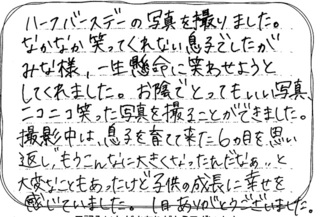 ハーフバースデーの写真を撮りました。
なかなか笑ってくれない息子でしたが
みな様、一生懸命に笑わせようと
してくれました。お陰でとってもいい写真、
ニコニコ笑った写真を撮ることができました。
撮影中は、息子を育てて来た6ヶ月を思い
返し、もうこんなに大きくなったんだなぁ。と
大変なこともあったけど子供の成長に幸せを
感じていました。1日ありがとうございました。